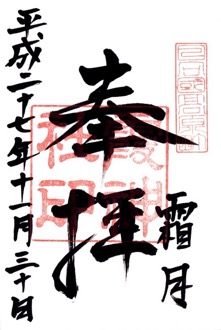 霜月
奉拝
神社印
平成二十七年十一月三十日